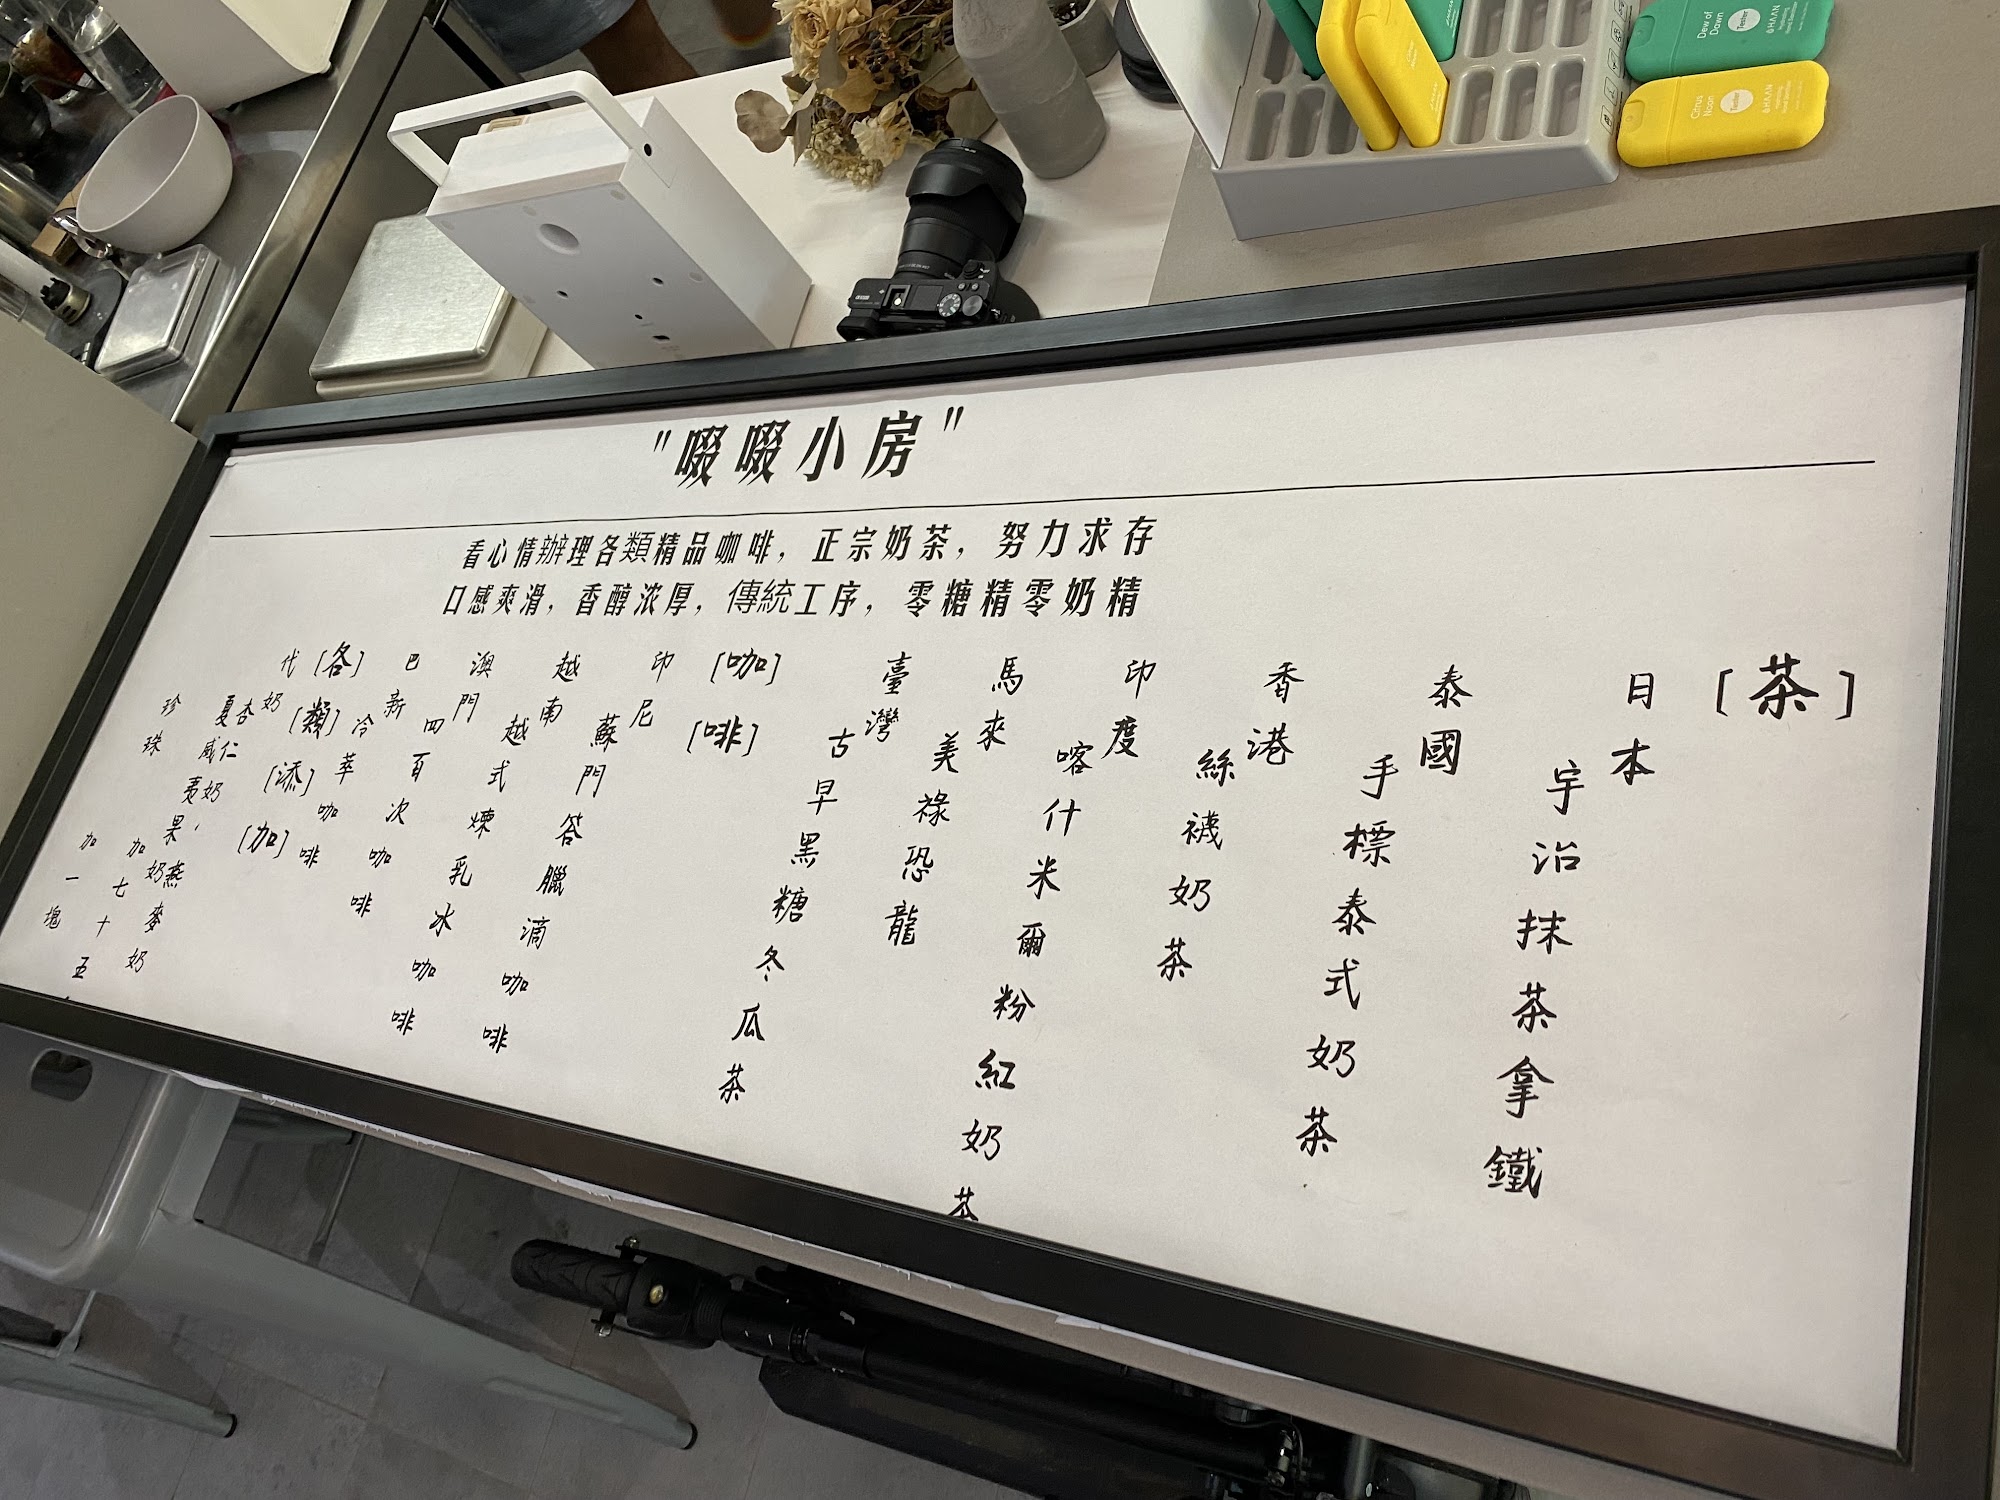 "啜啜小房"
看心情辦理各類精品咖啡，正宗奶茶，努力求存
口感爽滑，香醇浓厚，傳統工序，零糖精零奶精
［茶］
日本
宇治抹茶拿鐵
泰國
手標泰式奶茶
香港
絲襪奶茶
印度
喀什米爾粉紅奶茶
馬來
美祿恐龍
臺灣
古早黑糖冬瓜茶
［咖］［啡］
印尼
蘇門答臘滴咖啡
越南
越式煉乳冰咖啡
澳門
四百次咖啡
巴新
冷萃咖啡
［各］［類］［添］［加］
代奶
杏仁奶、燕麥奶
夏威夷果奶
加七十五
珍珠
加一塊
Dew of Dawn
Tester
HAAN
Citrus Noon
Tester
HAAN